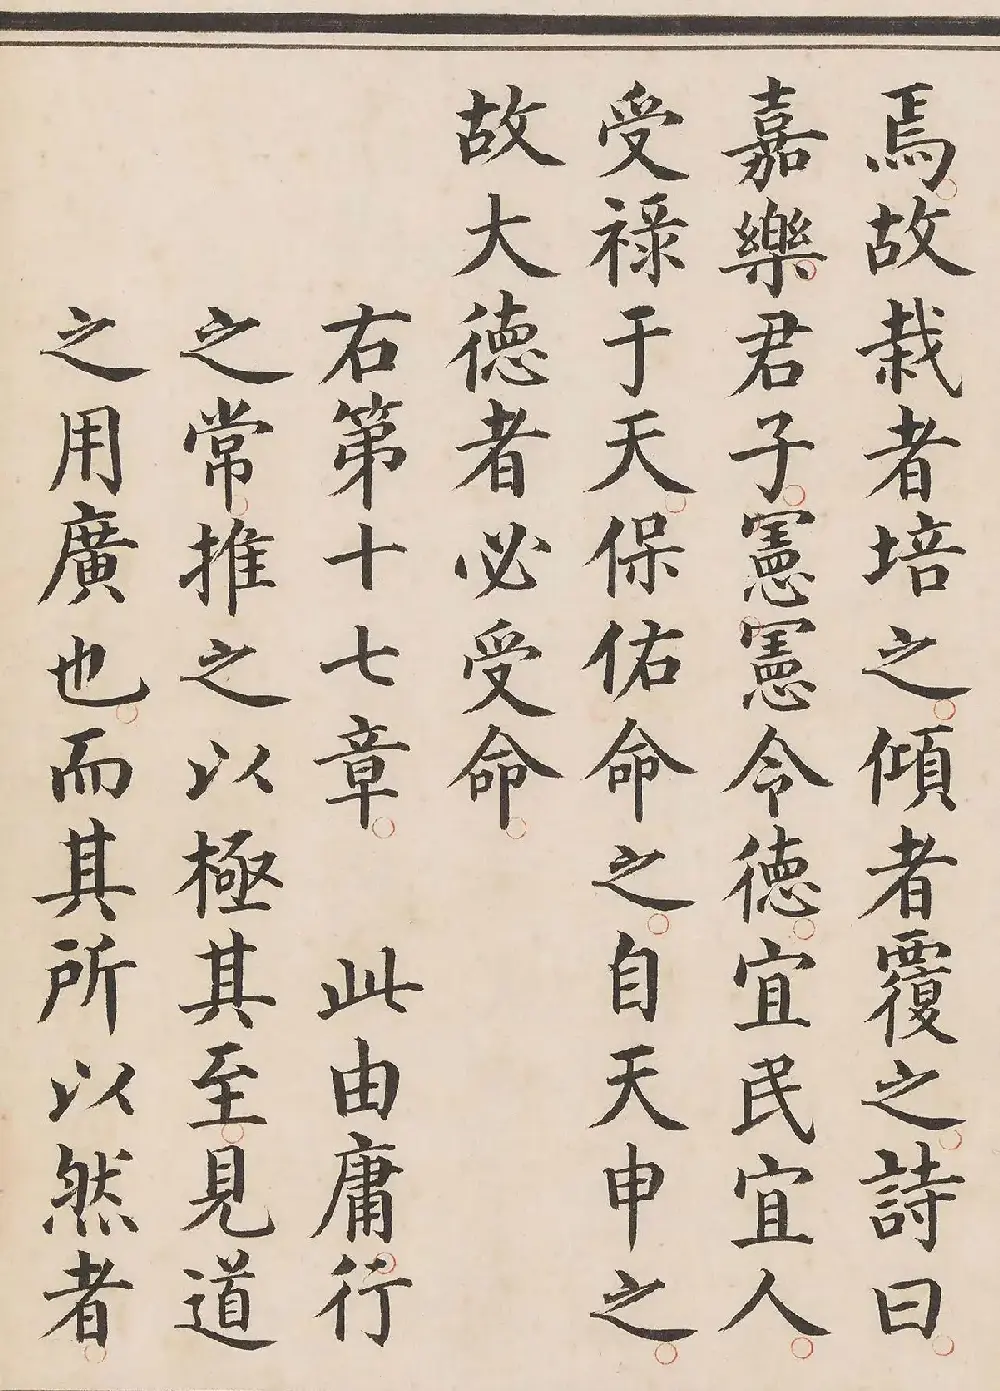 焉故栽者培之傾者覆之詩曰
嘉樂君子憲憲令德宜民宜人
受祿于天保佑命之自天申之
故大德者必受命
右第十七章 此由庸行
之常推之以極其至見道
之用廣也而其所以然者